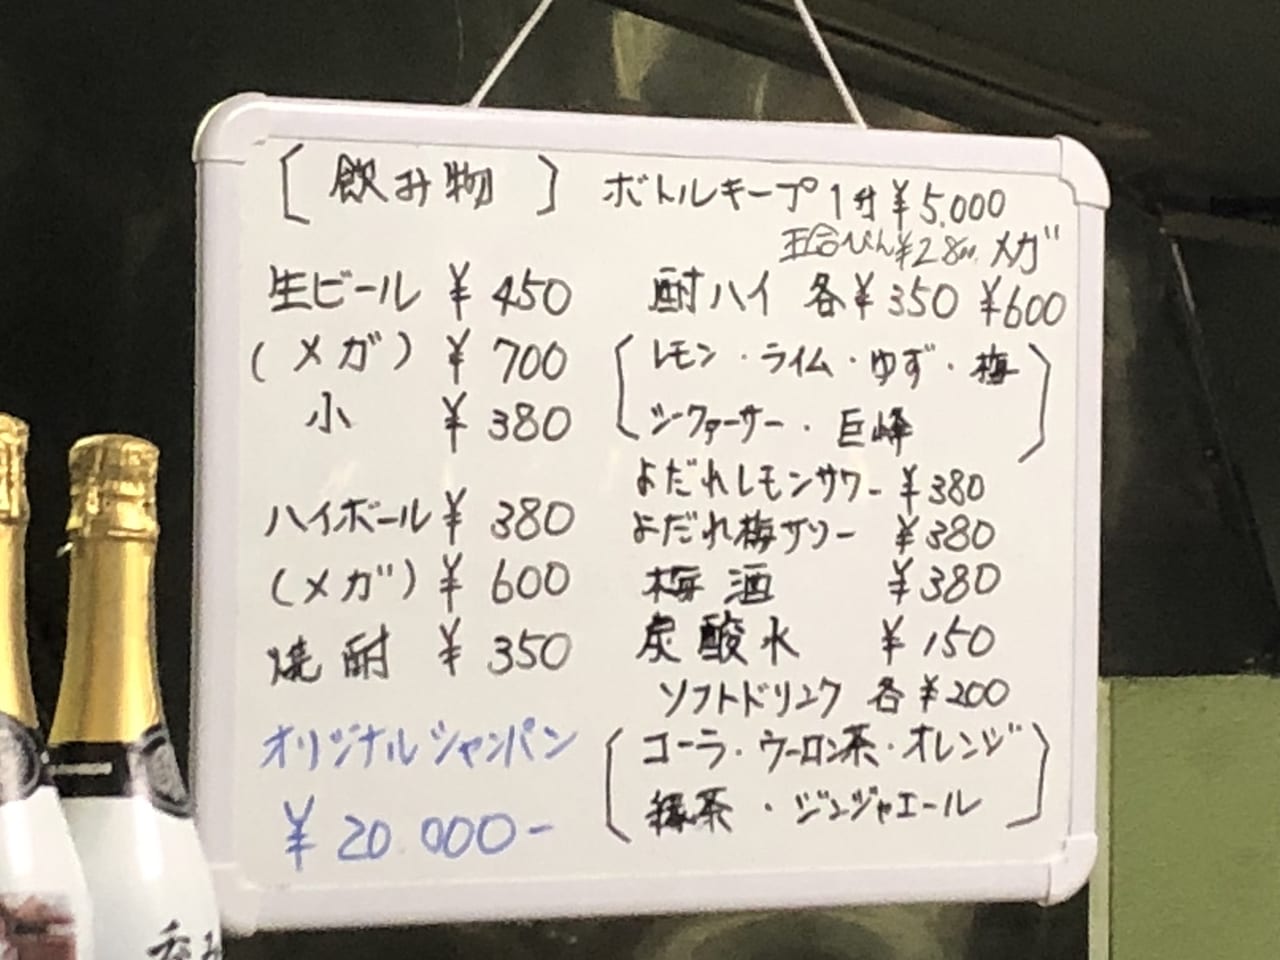 [ 飲み物 ]
生ビール ¥450
(メガ) ¥700
小 ¥380
ハイボール ¥380
(メガ) ¥600
焼酎 ¥350
オリジナルシャンパン
¥20.000-
ボトルキープ 1升¥5.000
五合びん¥2.800 メガ
酎ハイ 各¥350 ¥600
レモン・ライム・ゆず・梅
シークァーサー・巨峰
よだれレモンサワー ¥380
よだれ梅サワー ¥380
梅酒 ¥380
炭酸水 ¥150
ソフトドリンク 各¥200
コーラ・ウーロン茶・オレンジ
緑茶・ジンジャエール